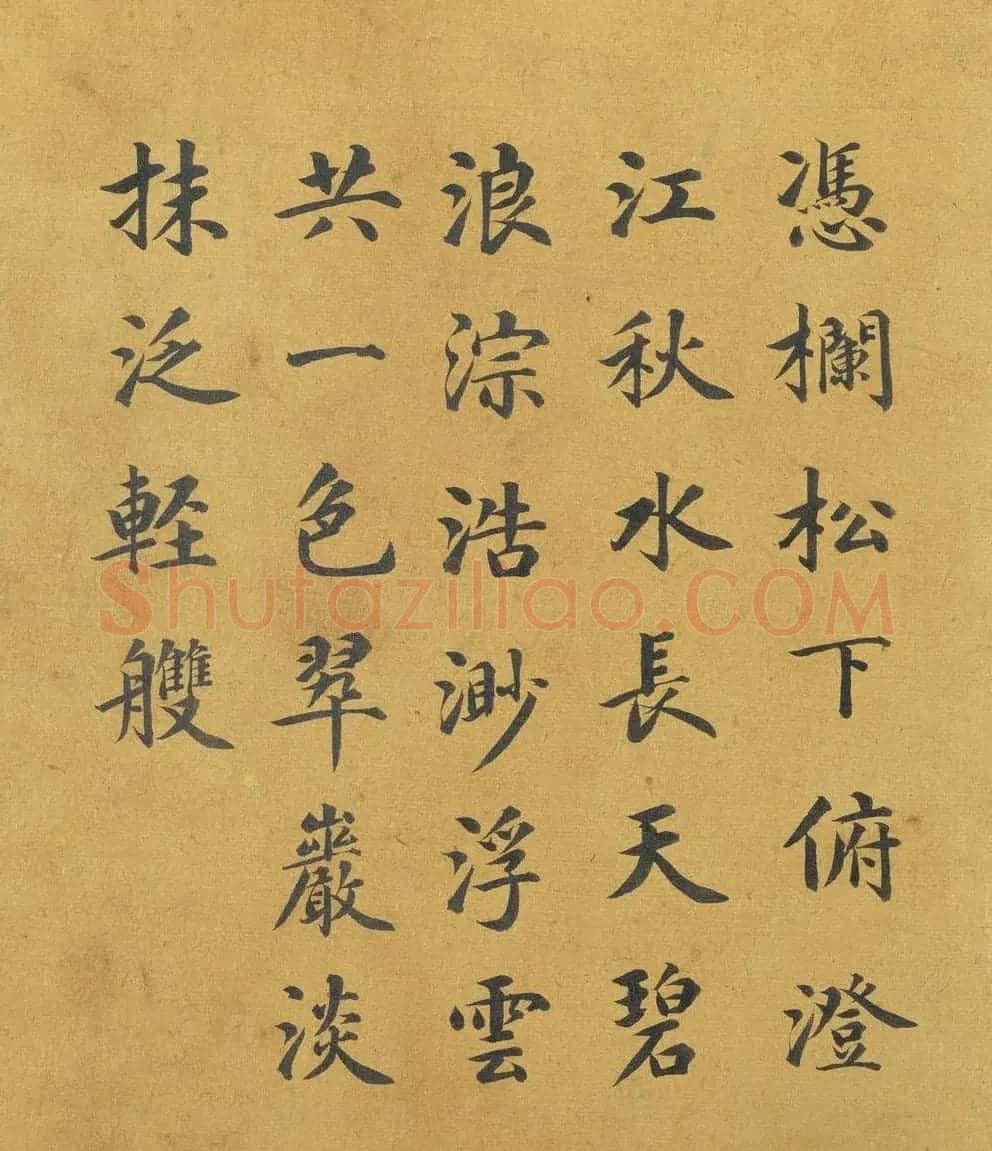 憑欄松下俯澄
江秋水長天碧
浪淙浩渺浮雲
共一色翠巖淡
抹泛軽艭
Shufaziliao.COM